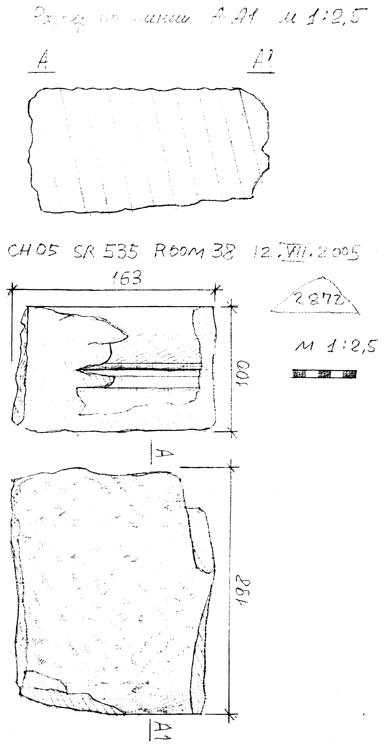 Разрез по линии А А1 м 1:2,5
А А1
CH05 SR 535 ROOM 38 12.VII.2005
163
2872
м 1:2,5
100
А
198
А1